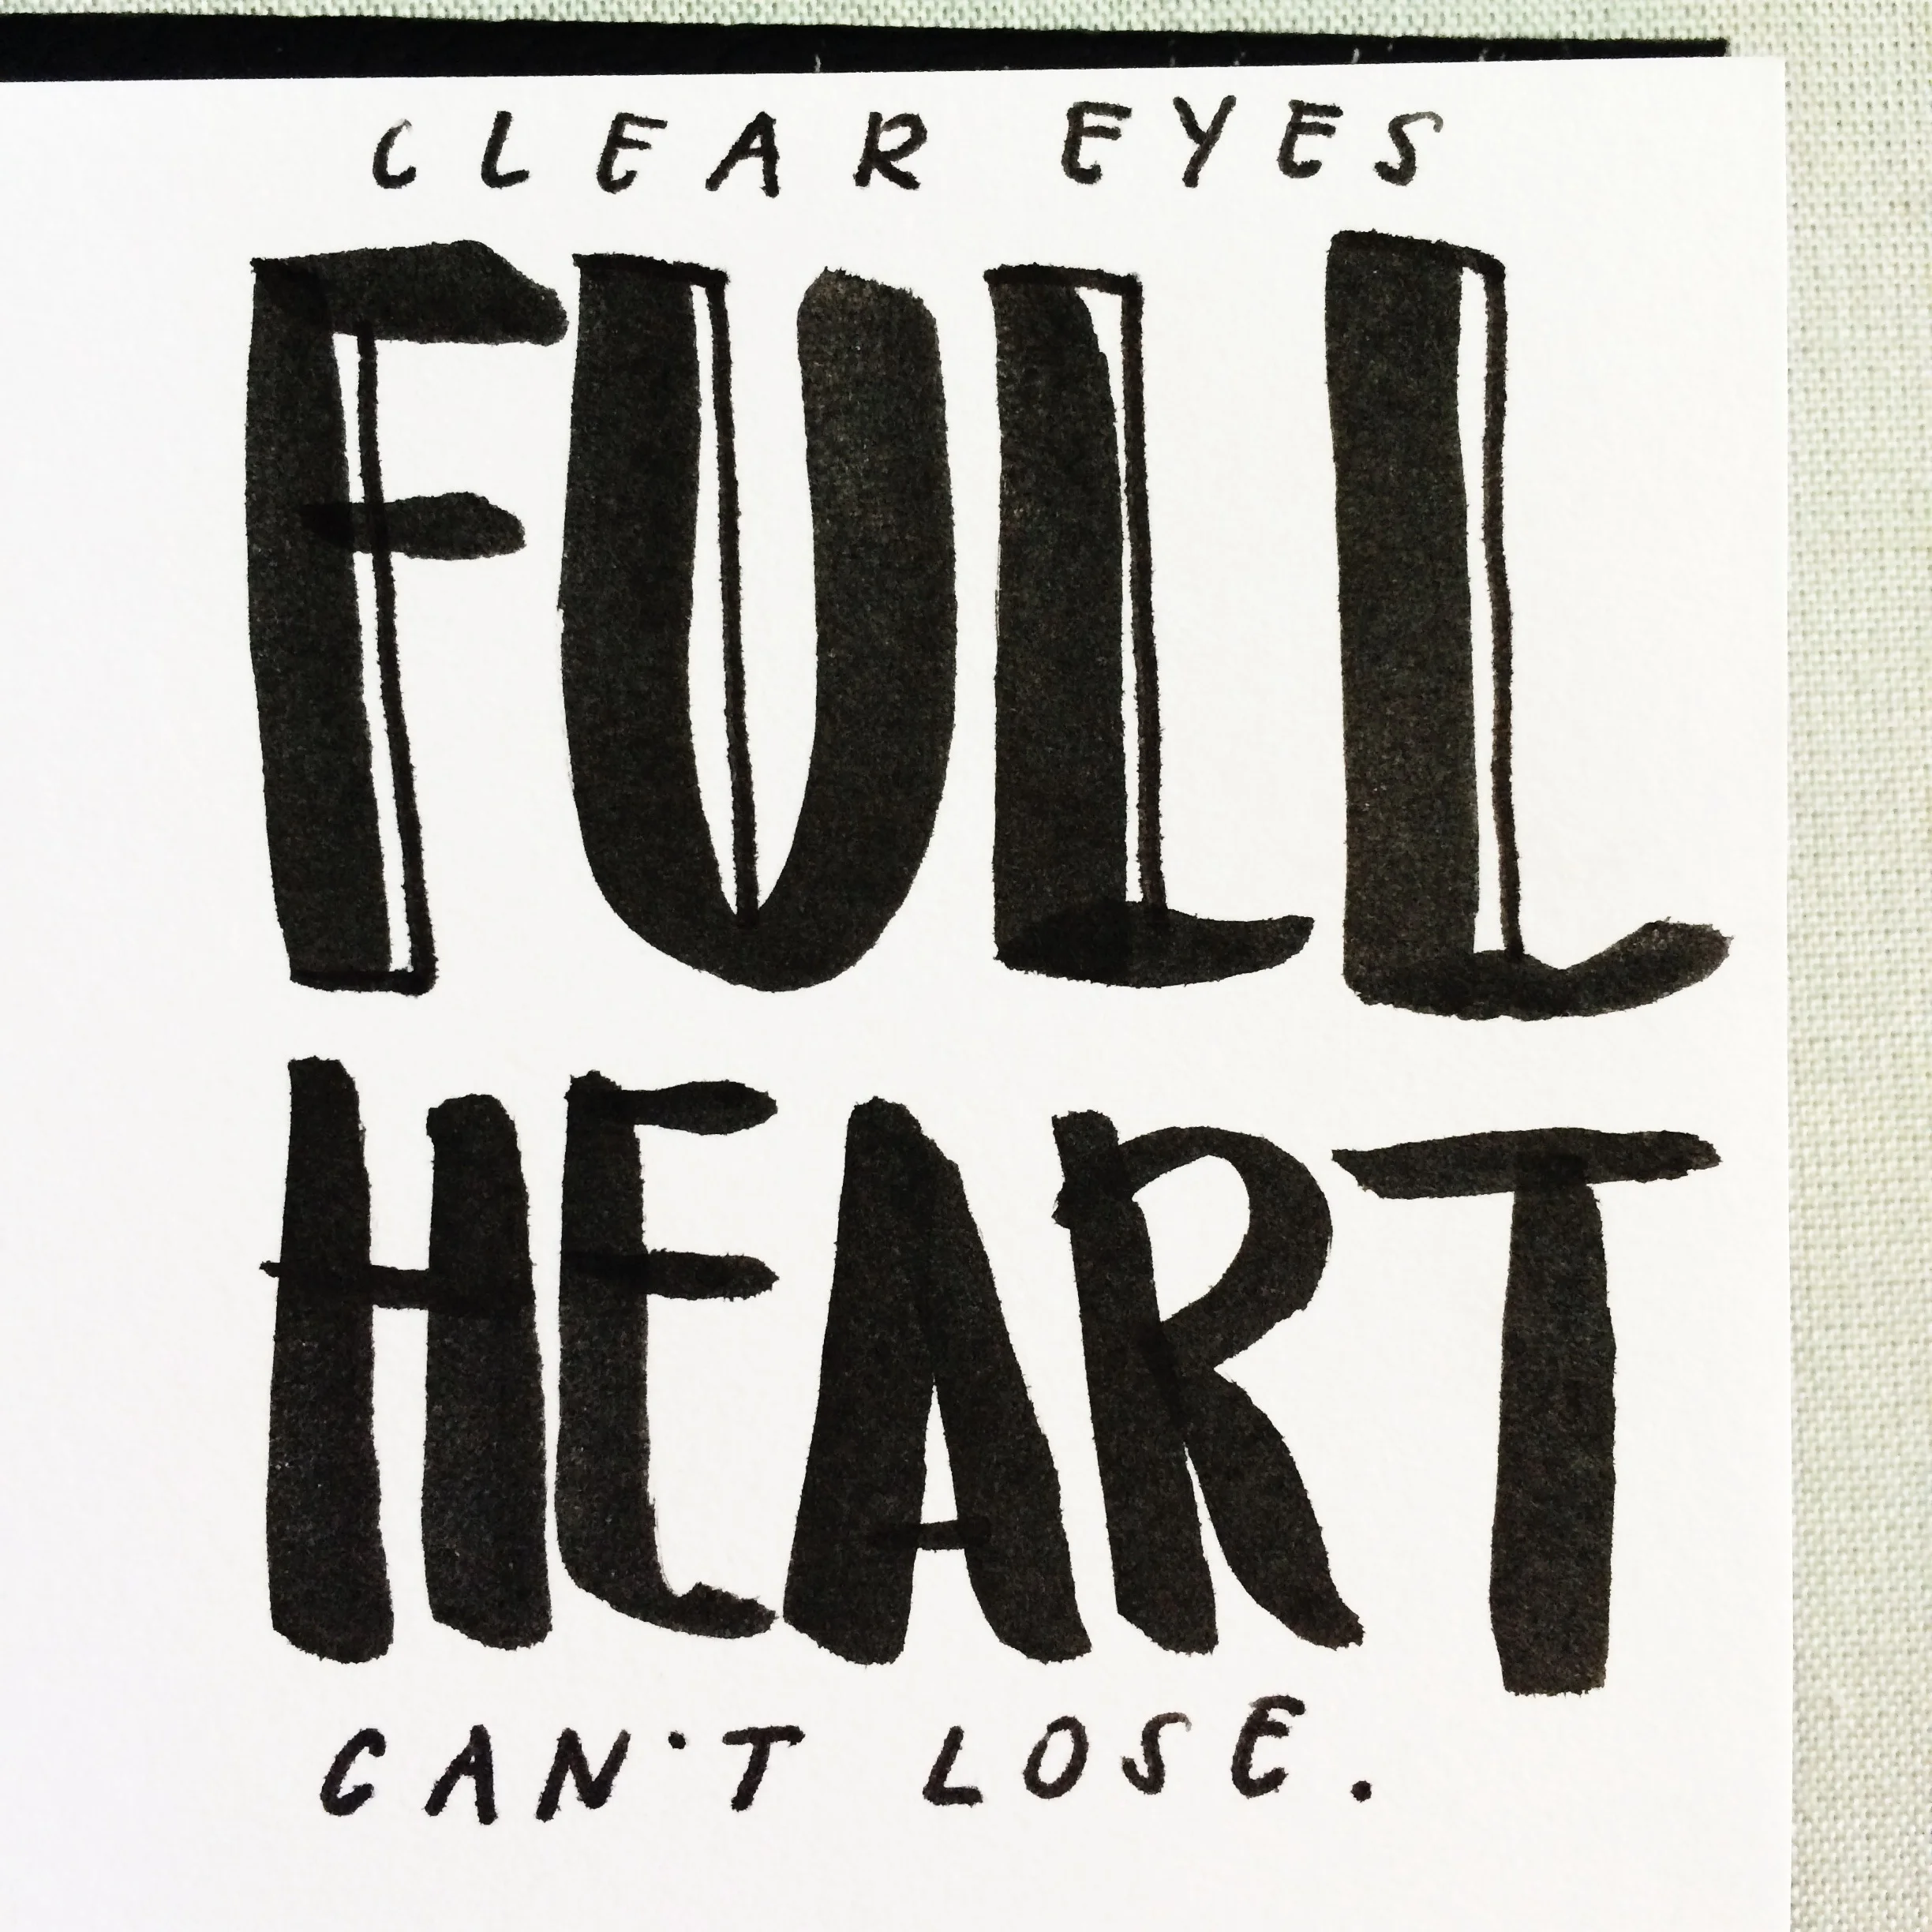 CLEAR EYES
FULL
HEART
CAN'T LOSE.